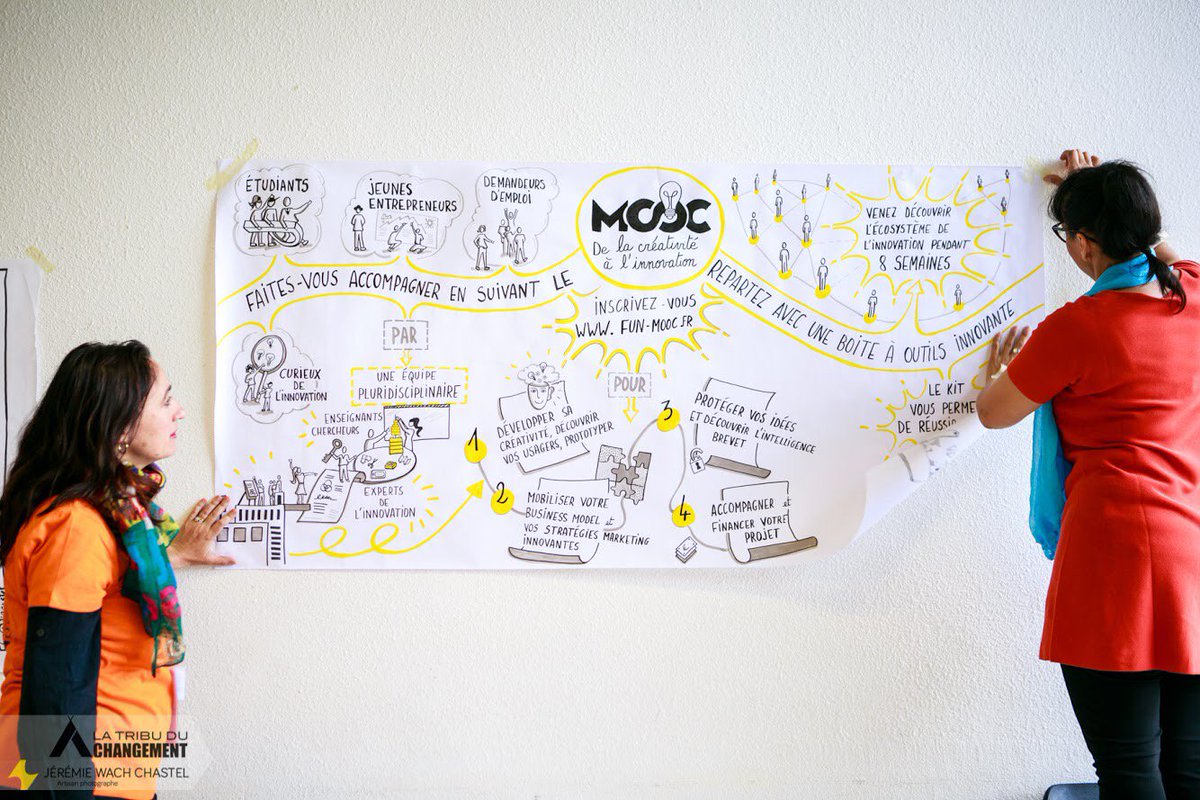 ÉTUDIANTS
JEUNES
ENTREPRENEURS
DEMANDEURS
D'EMPLOI
MOOC
De la créativité
à l'innovation
VENEZ DÉCOUVRIR
L'ÉCOSYSTÈME DE
L'INNOVATION PENDANT
8 SEMAINES
FAITES-VOUS ACCOMPAGNER EN SUIVANT LE
REPARTEZ AVEC UNE BOITE À OUTILS INNOVANTE
INSCRIVEZ-VOUS
WWW. FUN-MOOC.FR
CURIEUX
DE
L'INNOVATION
PAR
UNE ÉQUIPE
PLURIDISCIPLINAIRE
ENSEIGNANTS
CHERCHEURS
EXPERTS
DE
L'INNOVATION
POUR
1
DÉVELOPPER SA
CRÉATIVITÉ, DÉCOUVRIR
VOS USAGERS, PROTOTYPER
2
MOBILISER VOTRE
BUSINESS MODEL et
VOS STRATÉGIES MARKETING
INNOVANTES
3
PROTÉGER VOS IDÉES
ET DÉCOUVRIR L'INTELLIGENCE
BREVET
4
ACCOMPAGNER et
FINANCER VOTRE
PROJET
LE KIT
VOUS PERMET
DE RÉUSSIR
LA TRIBU DU
CHANGEMENT
JÉRÉMIE WACH CHASTEL
Artisan photographe